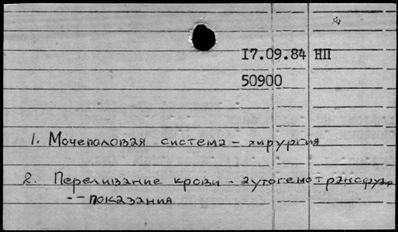 17.09.84 НП
50900
1. Мочеполовая система - хирургия
2. Переливание крови - аутогемотрансфузии
-- показания